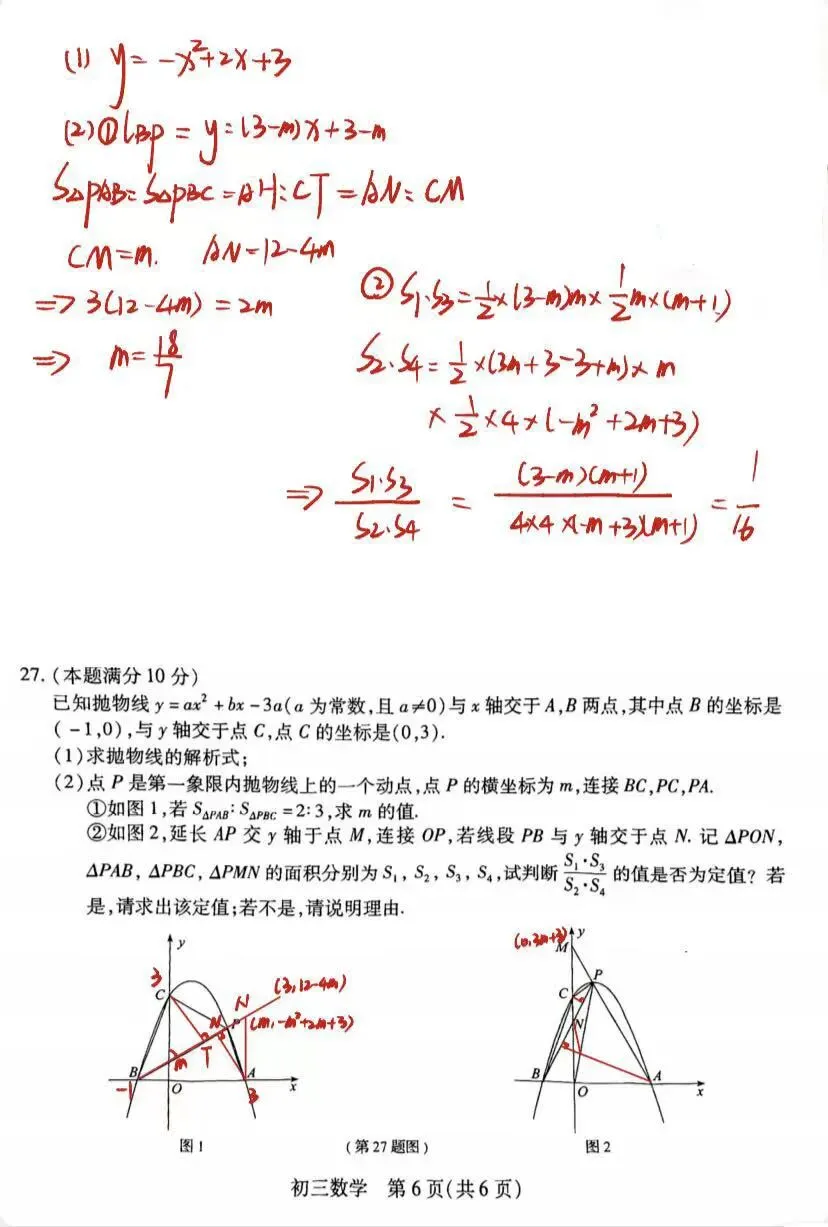 (1) y = -x²+2x+3
(2)①lBP = y=(3-m)x+3-m
S△PAB:S△PBC=AH:CT=AN:CM
CM=m. AN=12-4m
=> 3(12-4m)=2m
=> m=18/7
②S1·S3=1/2×(3-m)m×1/2m×(m+1)
S2·S4=1/2×(3m+3-3+m)×m
×1/2×4×(-m²+2m+3)
=> S1·S3/S2·S4 = (3-m)(m+1)/4×4×(-m+3)(m+1) = 1/16
27.(本题满分10分)
已知抛物线 y=ax²+bx-3a(a为常数,且a≠0)与x轴交于A,B两点,其中点B的坐标是
(-1,0),与y轴交于点C,点C的坐标是(0,3).
(1)求抛物线的解析式;
(2)点P是第一象限内抛物线上的一个动点,点P的横坐标为m,连接BC,PC,PA.
①如图1,若S△PAB:S△PBC=2:3,求m的值.
②如图2,延长AP交y轴于点M,连接OP,若线段PB与y轴交于点N.记△PON,
△PAB,△PBC,△PMN的面积分别为S1,S2,S3,S4,试判断S1·S3/S2·S4的值是否为定值?若
是,请求出该定值;若不是,请说明理由.
y
3
C
N
(3,12-4m)
N
P
(m,-m²+2m+3)
M
T
B
-1
O
A
3
x
图1
(0,3m+3)
M
y
P
C
N
B
O
A
x
图2
(第27题图)
初三数学 第6页(共6页)